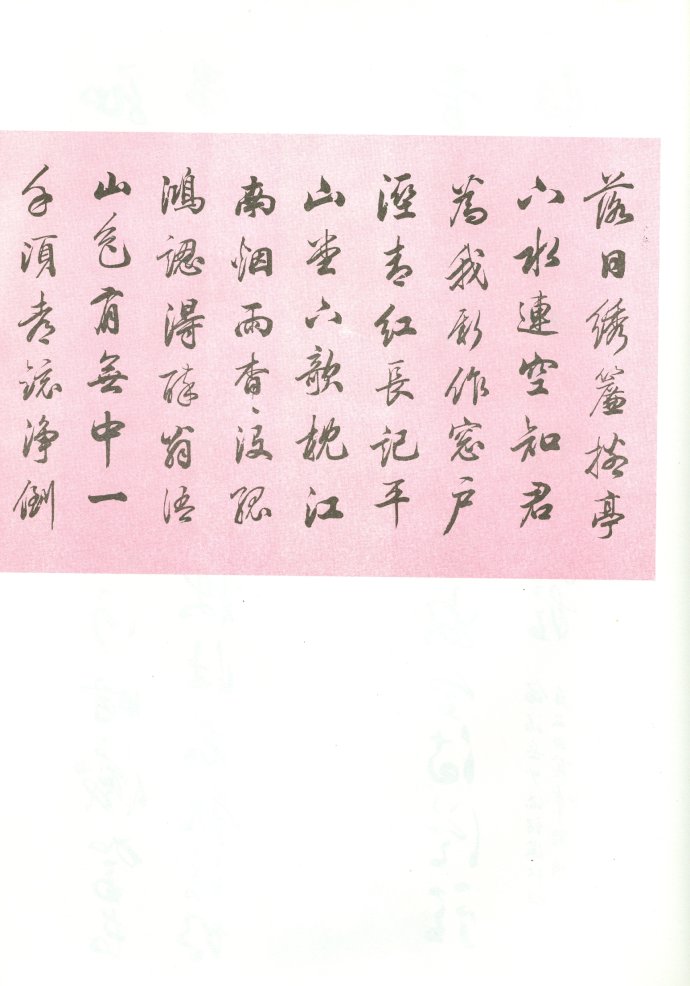 落日綉簾捲亭
下水連空知君
為我新作窓戶
溼青紅長記平
山堂上欹枕江
南烟雨杳〻没孤
鴻認得醉翁語
山色有無中一
千頃都鏡淨倒